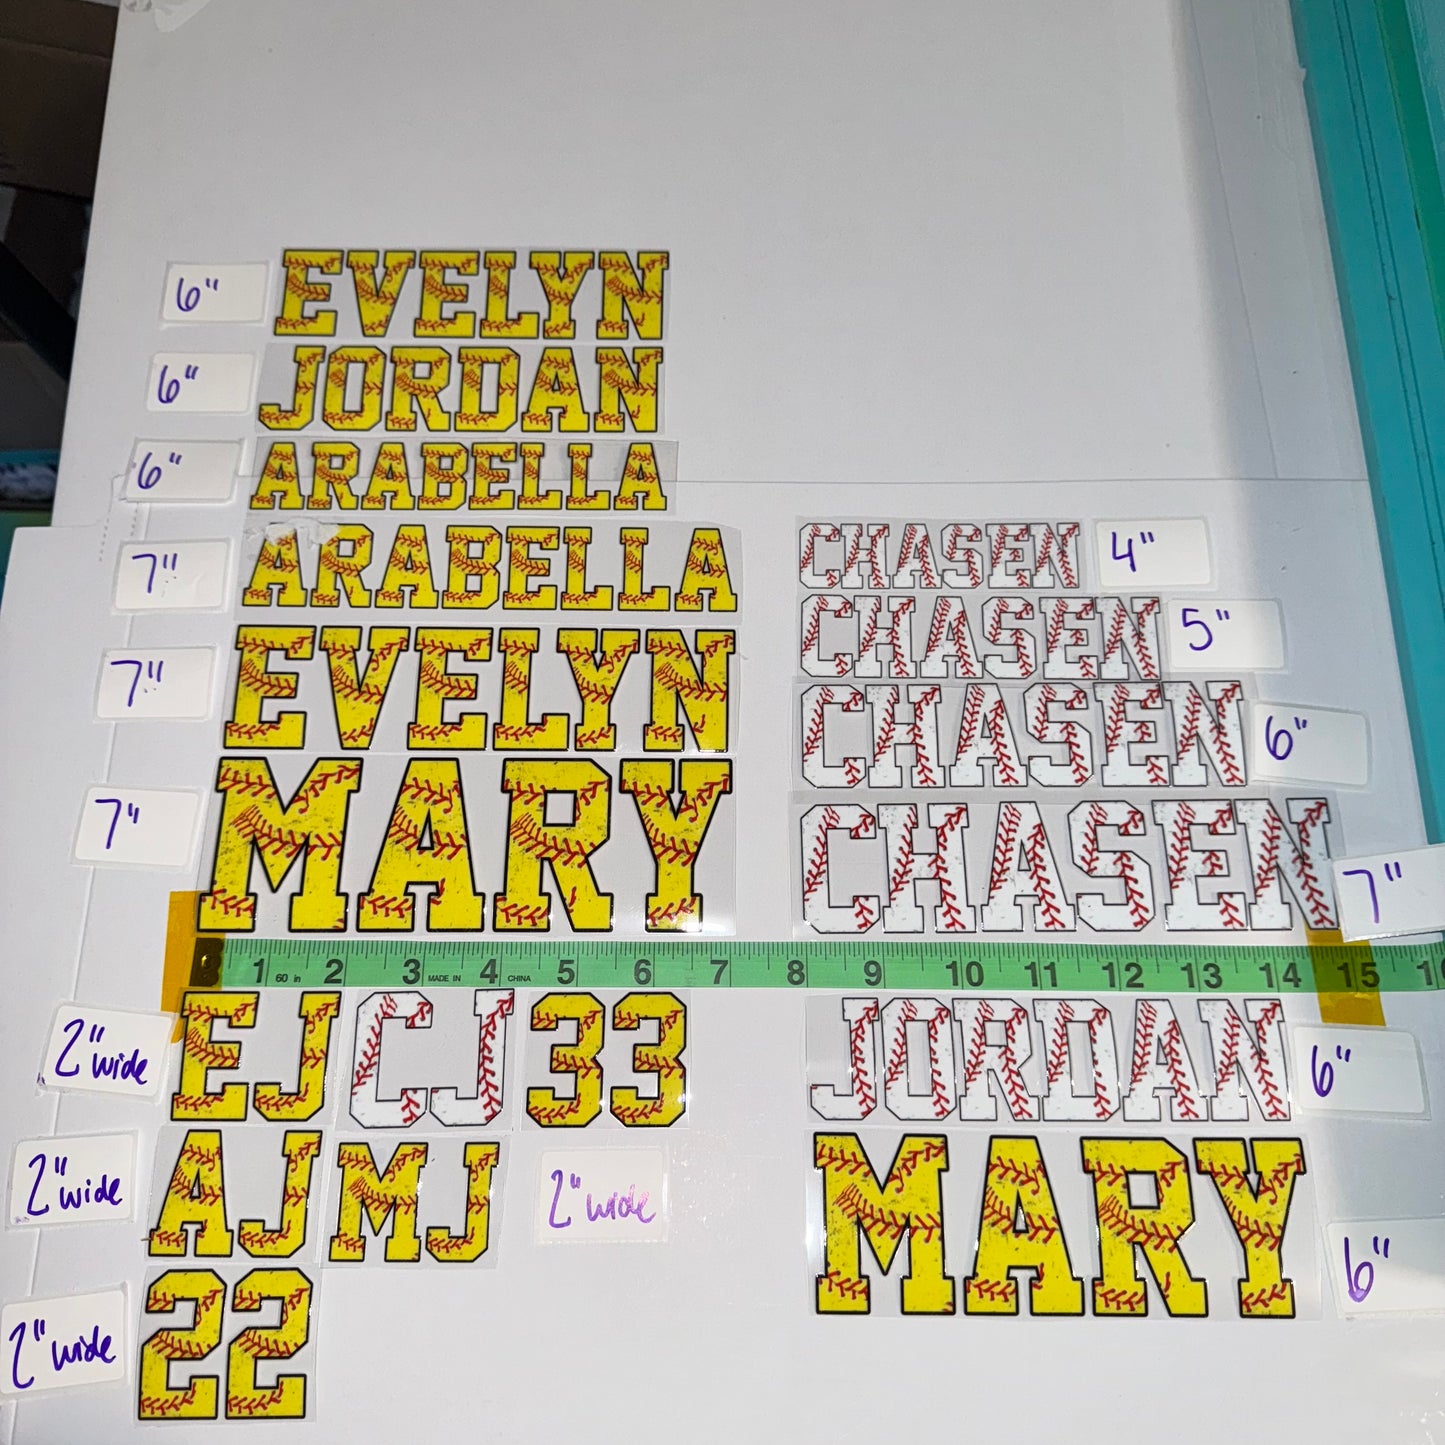 6" EVELYN
6" JORDAN
6" ARABELLA
7" ARABELLA
7" EVELYN
7" MARY
CHASEN 4"
CHASEN 5"
CHASEN 6"
CHASEN 7"
1 60 in 2 3 MADE IN 4 CHINA 5 6 7 8 9 10 11 12 13 14 15 16
2" wide EJ CJ 33
2" wide AJ MJ 2" wide
2" wide 22
JORDAN 6"
MARY 6"